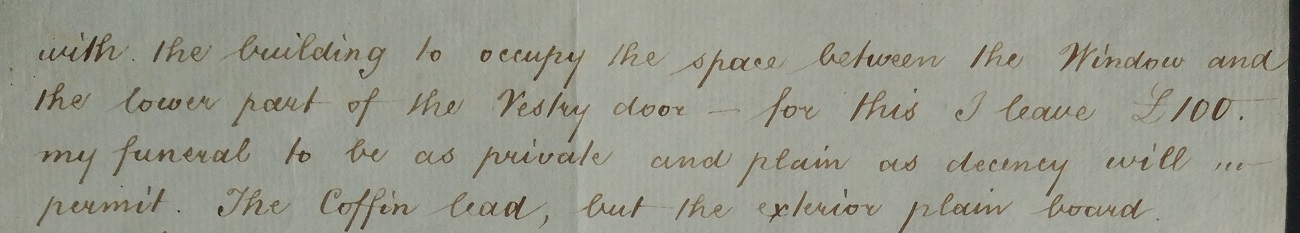 with the building to occupy the space between the Window and
the lower part of the Vestry door – for this I leave £100.
my funeral to be as private and plain as decency will ...
permit. The Coffin lead, but the exterior plain board.